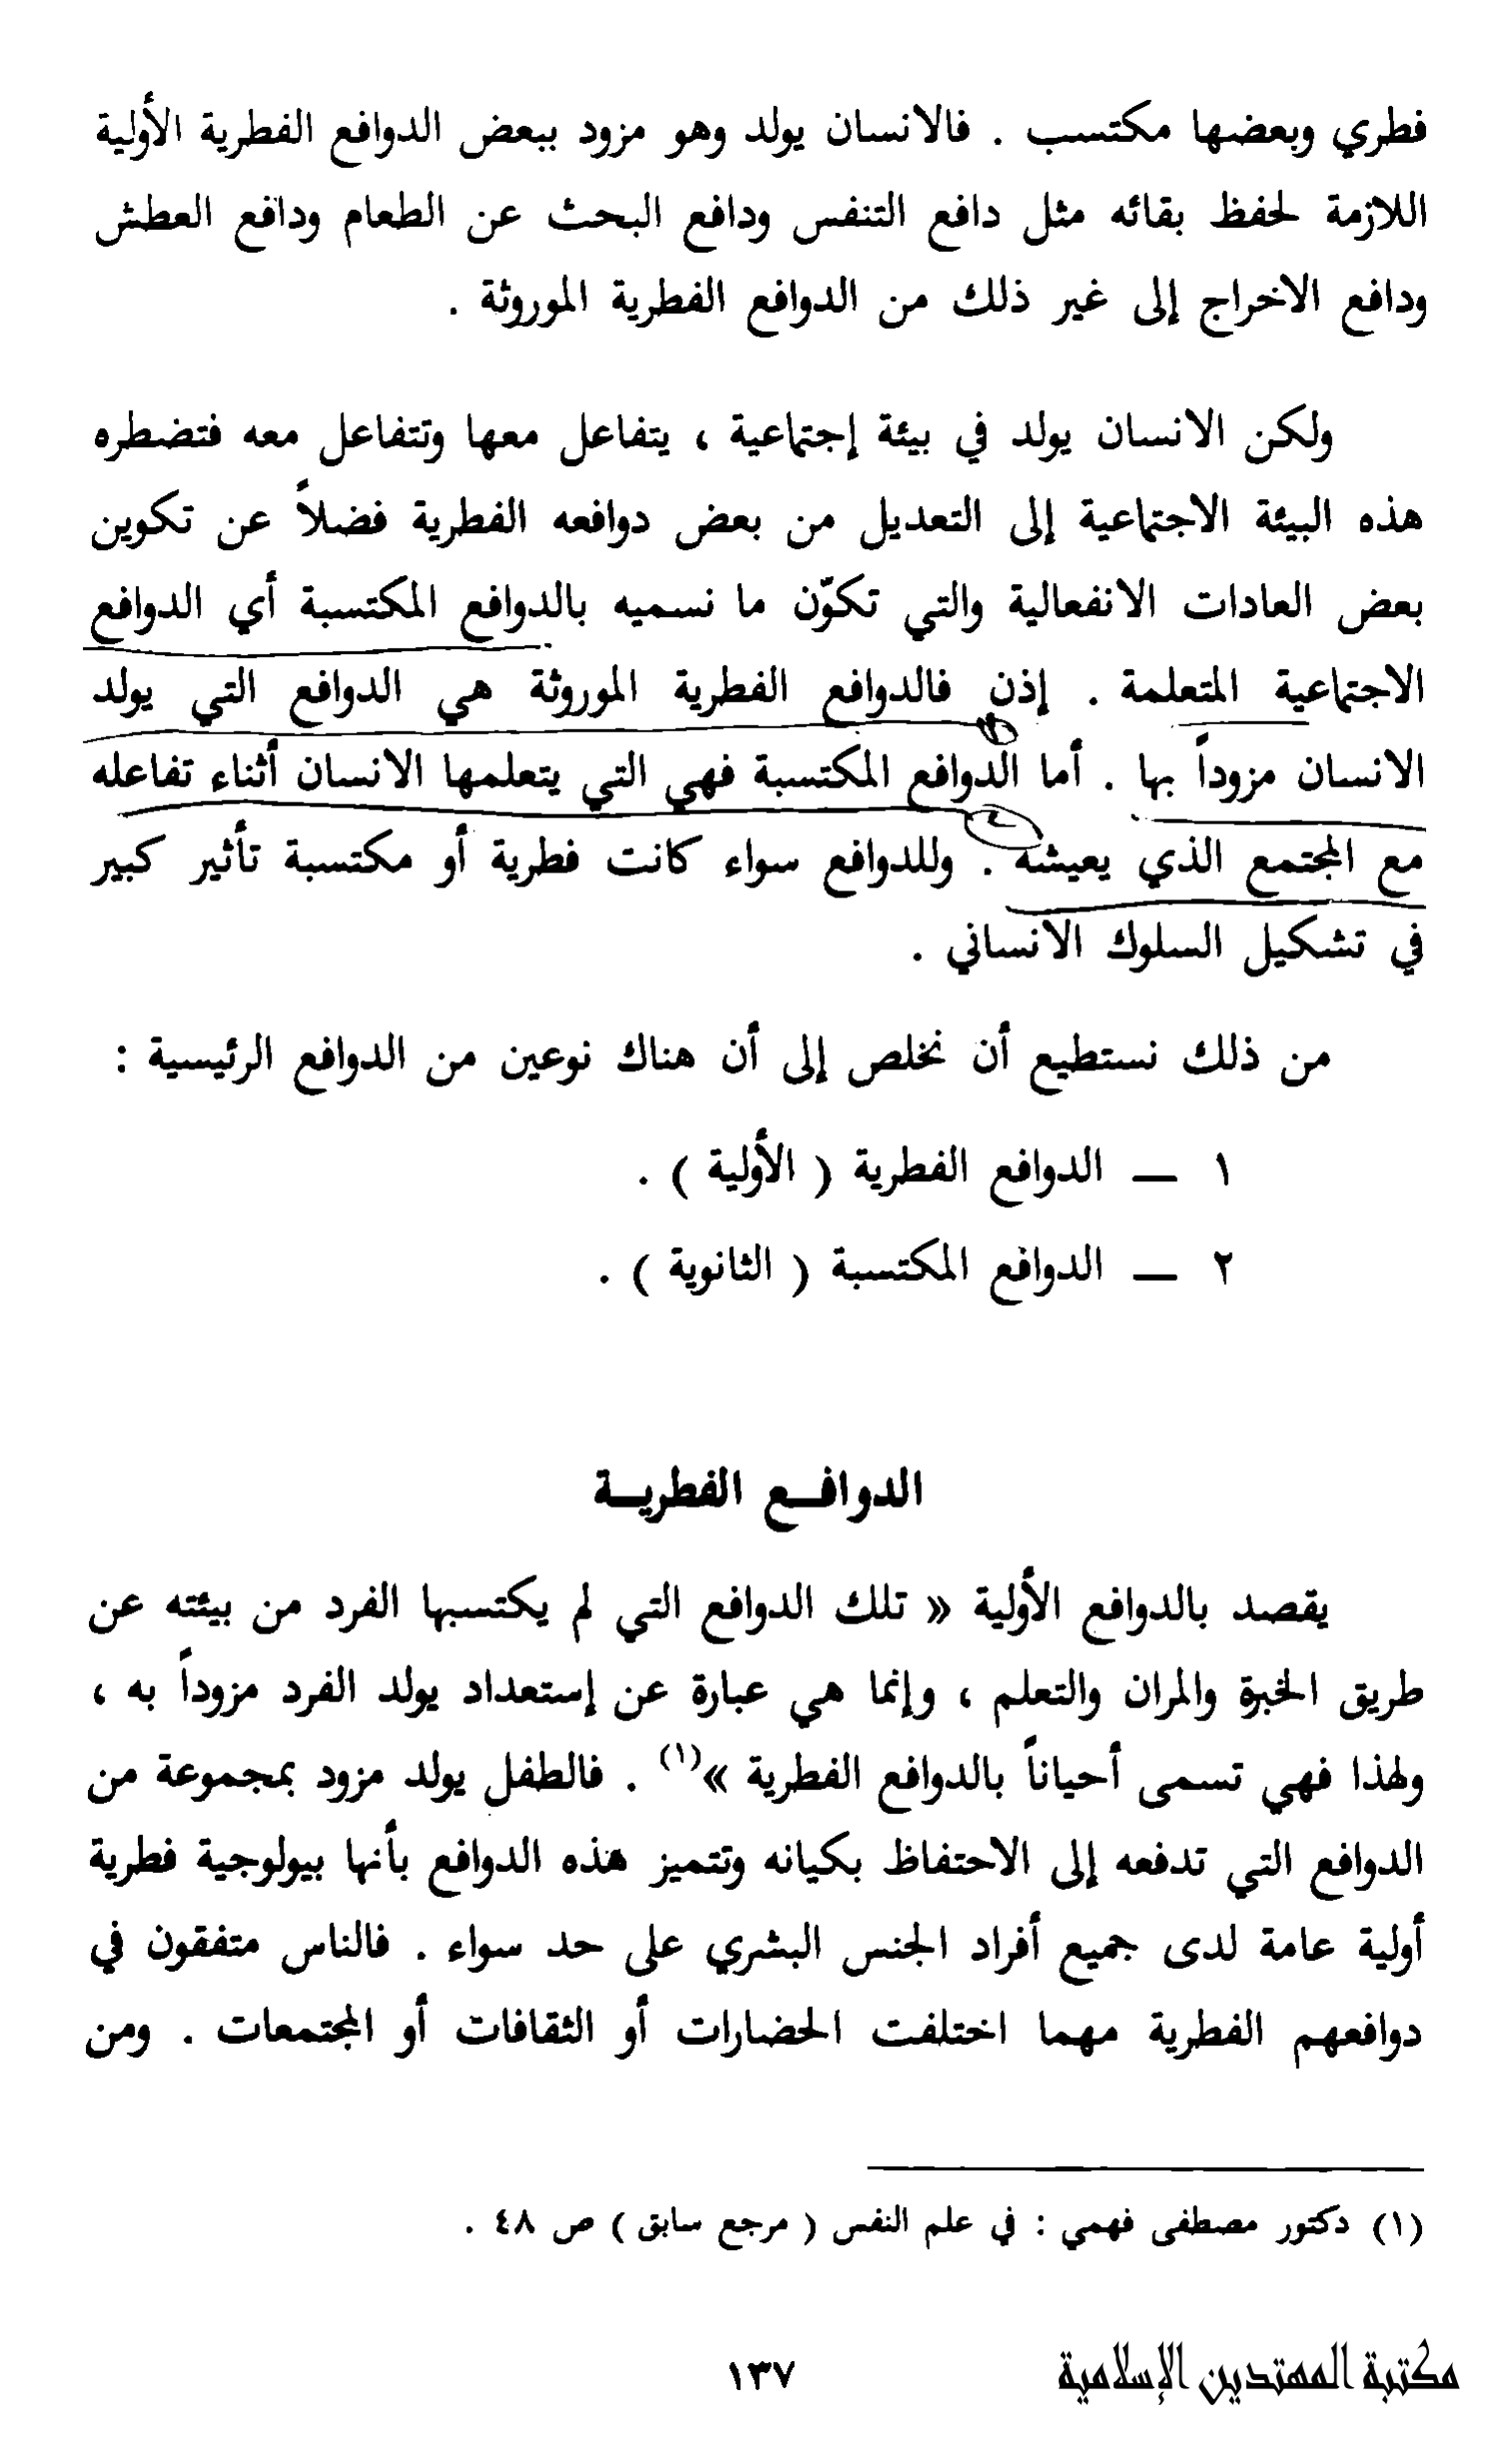 فطري وبعضها مكتسب . فالانسان يولد وهو مزود ببعض الدوافع الفطرية الأولية
اللازمة لحفظ بقائه مثل دافع التنفس ودافع البحث عن الطعام ودافع العطش
ودافع الاخراج إلى غير ذلك من الدوافع الفطرية الموروثة .
ولكن الانسان يولد في بيئة إجتماعية ، يتفاعل معها وتتفاعل معه فتضطره
هذه البيئة الاجتماعية إلى التعديل من بعض دوافعه الفطرية فضلاً عن تكوين
بعض العادات الانفعالية والتي تكوّن ما نسميه بالدوافع المكتسبة أي الدوافع
الاجتماعية المتعلمة . إذن فالدوافع الفطرية الموروثة هي الدوافع التي يولد
الانسان مزوداً بها . أما الدوافع المكتسبة فهي التي يتعلمها الانسان أثناء تفاعله
مع المجتمع الذي يعيشه . وللدوافع سواء كانت فطرية أو مكتسبة تأثير كبير
في تشكيل السلوك الانساني .
من ذلك نستطيع أن نخلص إلى أن هناك نوعين من الدوافع الرئيسية :
١ — الدوافع الفطرية ( الأولية ) .
٢ — الدوافع المكتسبة ( الثانوية ) .
الدوافـع الفطريـة
يقصد بالدوافع الأولية « تلك الدوافع التي لم يكتسبها الفرد من بيئته عن
طريق الخبرة والمران والتعلم ، وإنما هي عبارة عن إستعداد يولد الفرد مزوداً به ،
ولهذا فهي تسمى أحياناً بالدوافع الفطرية »(١) . فالطفل يولد مزود بمجموعة من
الدوافع التي تدفعه إلى الاحتفاظ بكيانه وتتميز هذه الدوافع بأنها بيولوجية فطرية
أولية عامة لدى جميع أفراد الجنس البشري على حد سواء . فالناس متفقون في
دوافعهم الفطرية مهما اختلفت الحضارات أو الثقافات أو المجتمعات . ومن
(١) دكتور مصطفى فهمي : في علم النفس ( مرجع سابق ) ص ٤٨ .
١٣٧
مكتبة المهتدين الإسلامية